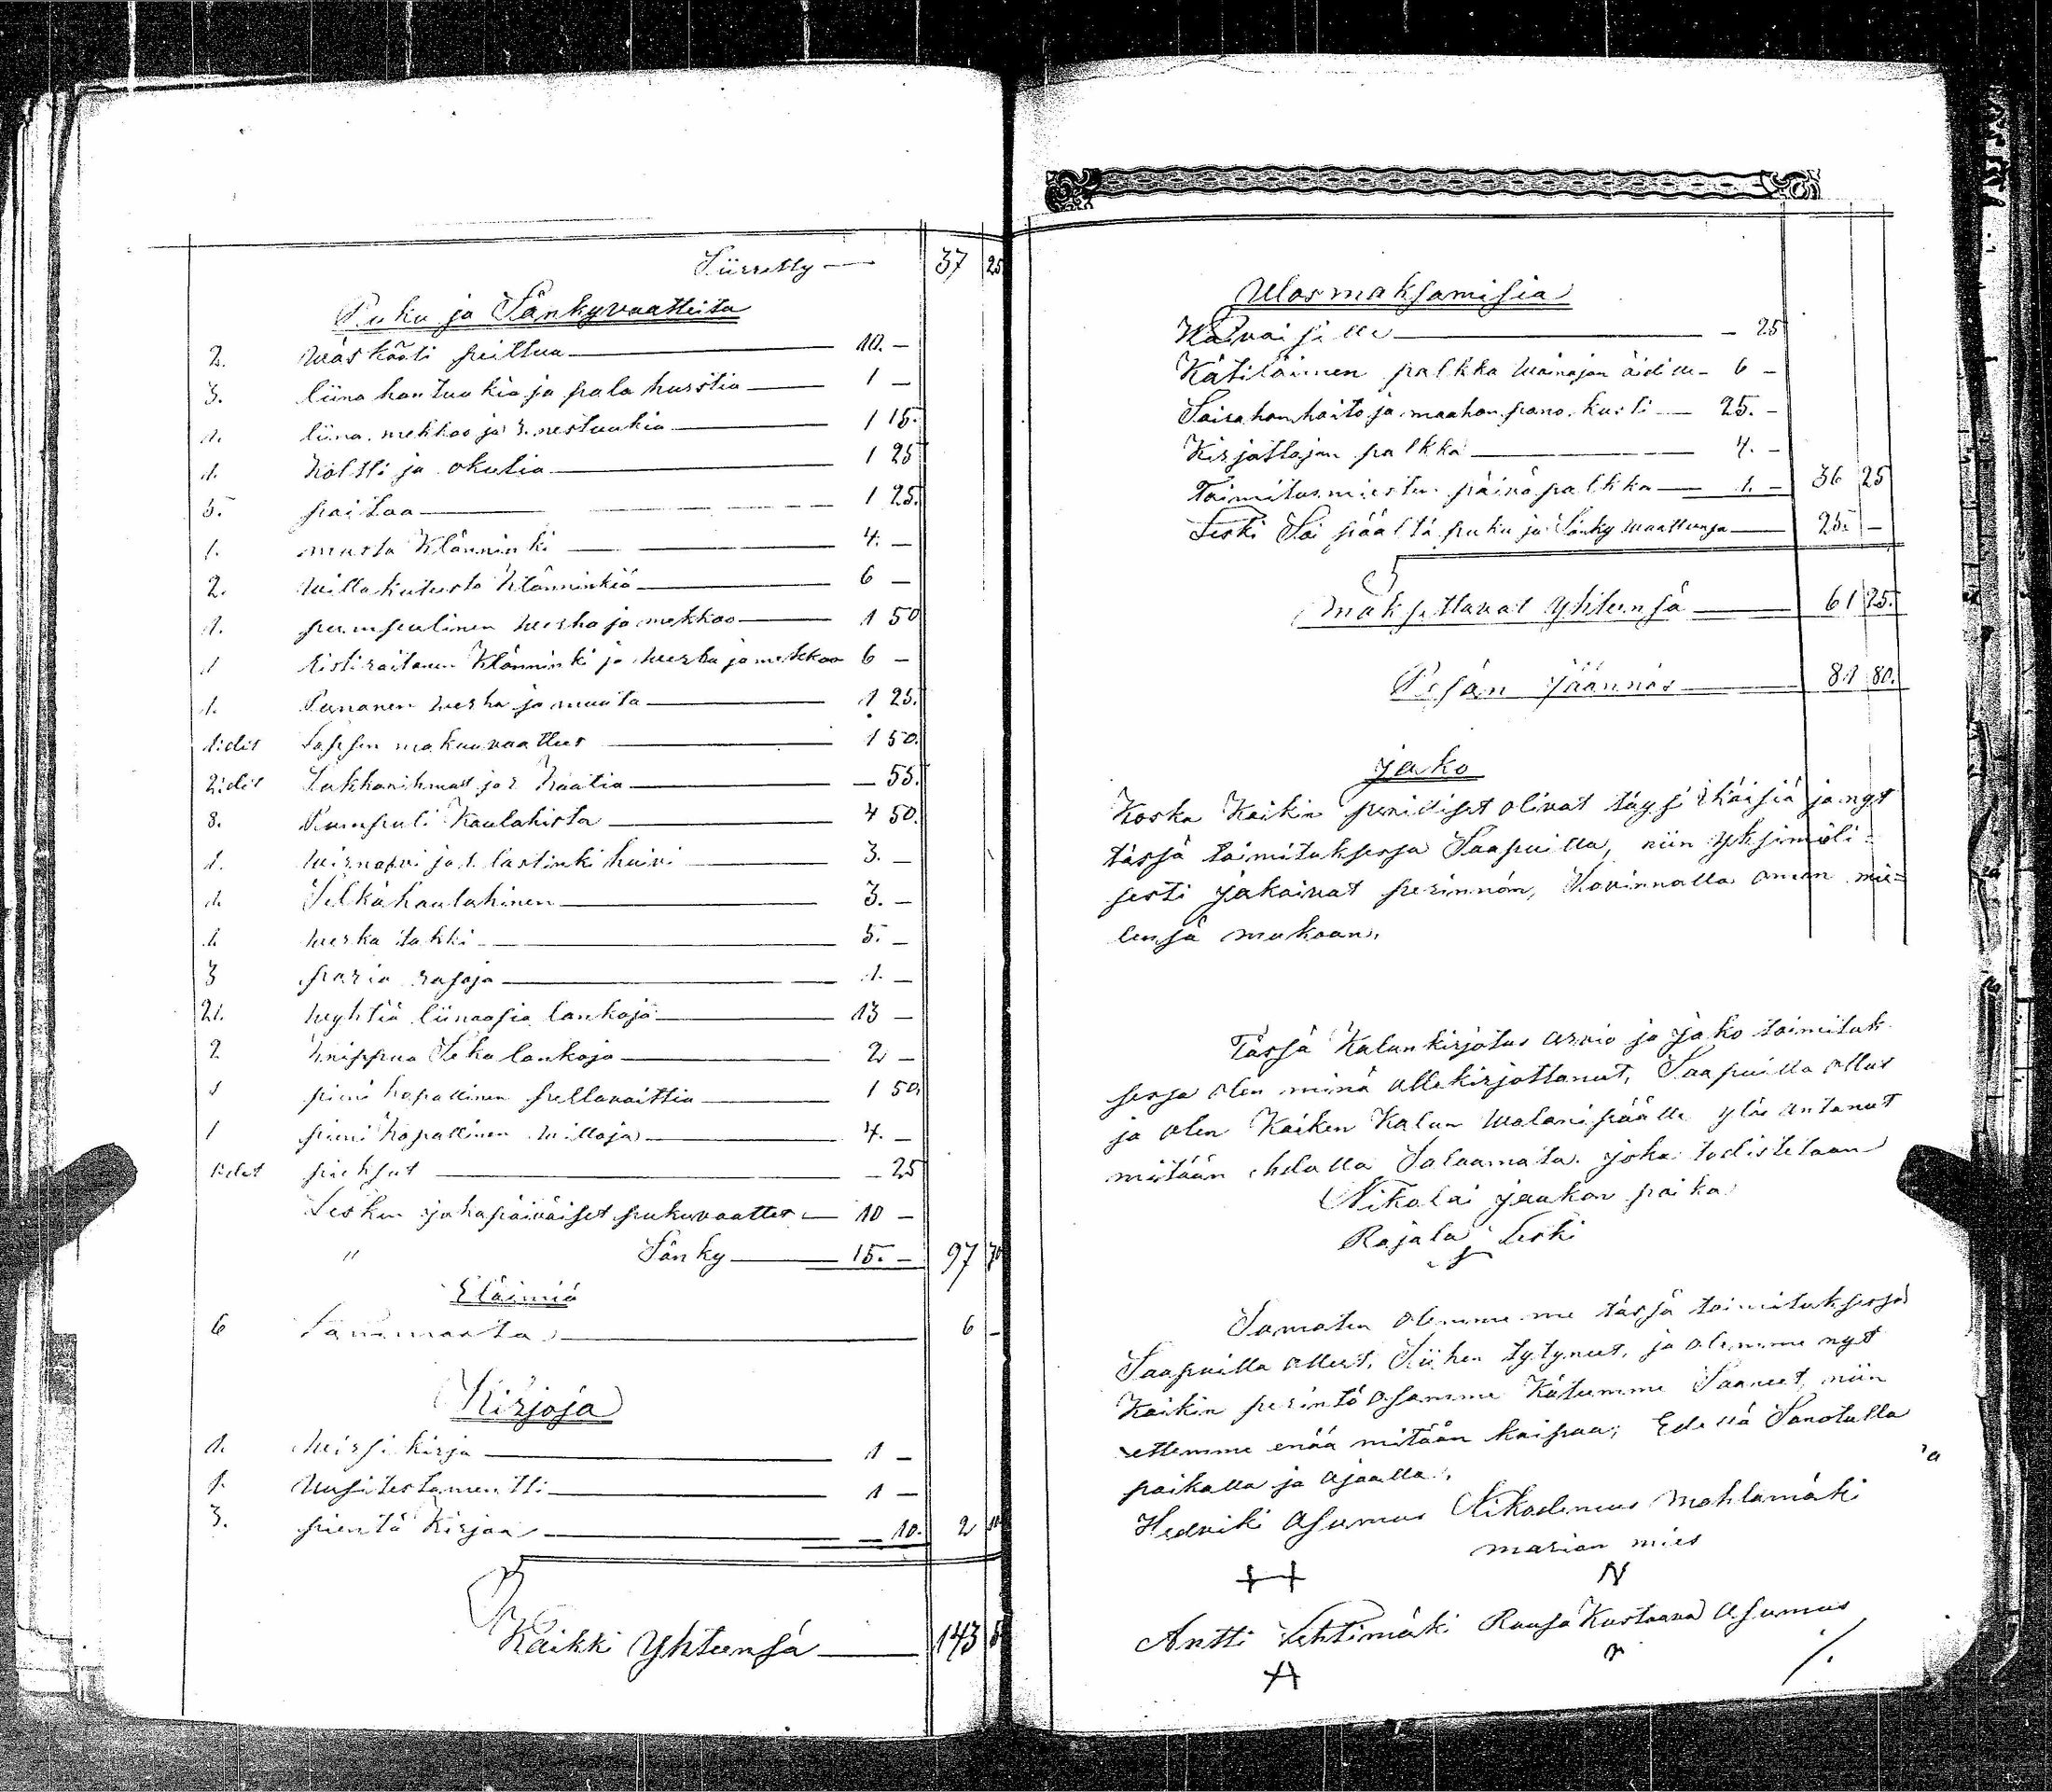 Siirretty — 37 25
Puku ja Sänkyvaatteita
2. Wäskööti peittua — 10. –
3. liina hantuukia ja pala hurstia — 1 –
1. liina mekkoo ja esnestuukia — 1 15.
1. Koltti ja — 1 25
5. paitaa — 1 25.
1. musta Klänninki — 4. –
2. Willakuteista Klänninkiä — 6 –
1. pumpulinen Werka ja mekkoo — 1 50
1 Ristiraitanen Klänninki ja Werka ja mekkoo 6 –
1. Punanen Werka ja muuta — 1 25.
1idet Lapsen makuuvaatteet — 1 50.
2idet Sukkarihmat ja 2 — 55.
8. Pumpuli Kaulahista — 4 50.
1. ja 1. lastinki huivi — 3. –
1. Silkikaulahinen — 3. –
1. Werka takki — 5. –
3 paria rasoja — 1. –
21. Wyhtiä liinaasia lankoja — 13 –
2 Knippua Seka lankoja — 2 –
1 pieni kopallinen pellavaittia — 1 50.
1 pieni kopallinen Willoja — 4. –
1idet pieksut — – 25
Lesken jokapäiväiset pukuvaatteet — 10 –
" Sänky — 15. – 97 70
Eläimiä
6 Lammasta — 6 –
Kirjoja
1. Wirsi kirja — 1 –
1. Uusi testamentti — 1 –
3. pientä Kirjaa — – 10. 2 10
Kaikki Yhteensä — 143 5
Ulosmaksamisia
Waivaisille — – 25
Kätilöinnen palkka Wainajan äidille – 6 –
Sairahanhoito ja maahanpano kusti — 25. –
Kirjottajan palkka — 4. –
Toimitusmiesten päivä palkka — 1. – 36 25
Leski Sai päältä puku ja Sänky waatteensa — 25. –
maksettavat Yhteensä — 61 25.
Pesän Jäännös — 81 80.
Jako
Koska Kaikin perilliset olivat täysi ikäisiä ja nyt
tässä toimituksessa Saapuilla, niin yksimieli-
sesti jakaivat perinnön, Kovinnolla oman mie=
lensä mukaan.
Tässä Kalunkirjotus arvio ja jako toimituk
sessa olen minä allekirjottanut, Saapuilla ollut
ja olen Kaiken Kalun Walani päälle ylös antanut
mitään ehdolla Salaamata. joka todistetaan
Nikolai jaakon poika
Rajala Leski
Samaten olemme me tässä toimituksessa
Saapuilla olleet, Siihen tytyneet, ja olemme nyt
Kaikin perintö osamme Käteemme Saaneet, niin
ettemme enää mitään kaipaa; Edellä Sanotulla
paikalla ja Ajaalla.
Hedviki Asumus Nikodemus Mahlamäki
marian mies
H N
Antti Lehtimäki Ruusa Kustaava Asumus
A